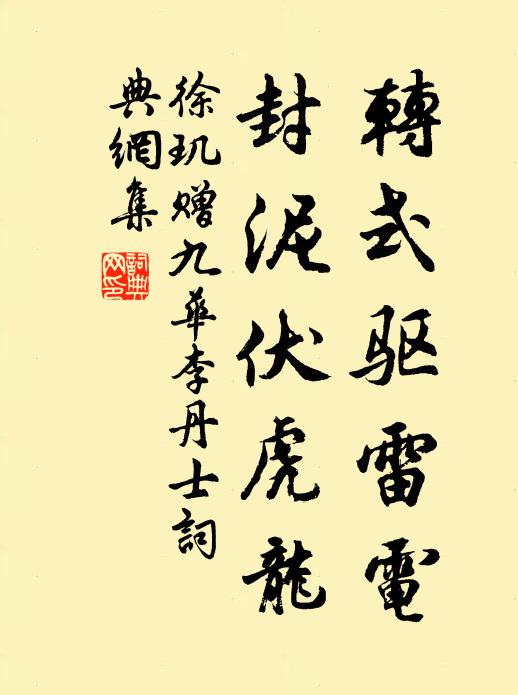 轉式驱雷電
封泥伏虎龍
徐玑赠九華李丹士詞
典網集
詞典网印